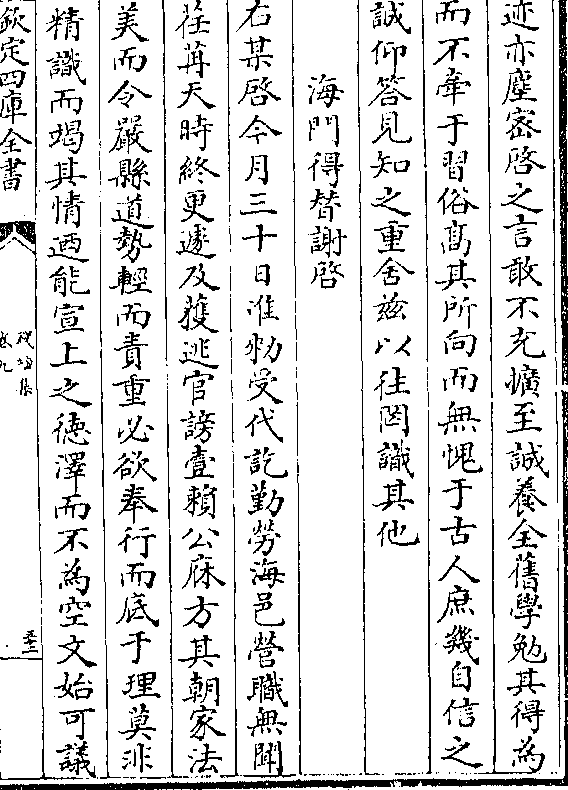 迹亦塵宻啓之言敢不充擴至誠養全舊學勉其得為
而不牽于習俗髙其所向而無愧于古人庶幾自信之
誠仰答見知之重舍兹以往罔識其他
海門得替謝啓
右某啓今月三十日准勑受代訖勤勞海邑營職無聞
荏苒天時終更遽及獲逃官謗壹頼公庥方其朝家法
美而令嚴縣道勢輕而責重必欲奉行而底于理莫非
精識而竭其情廼能宣上之徳澤而不為空文始可議
欽定四庫全書
卷九